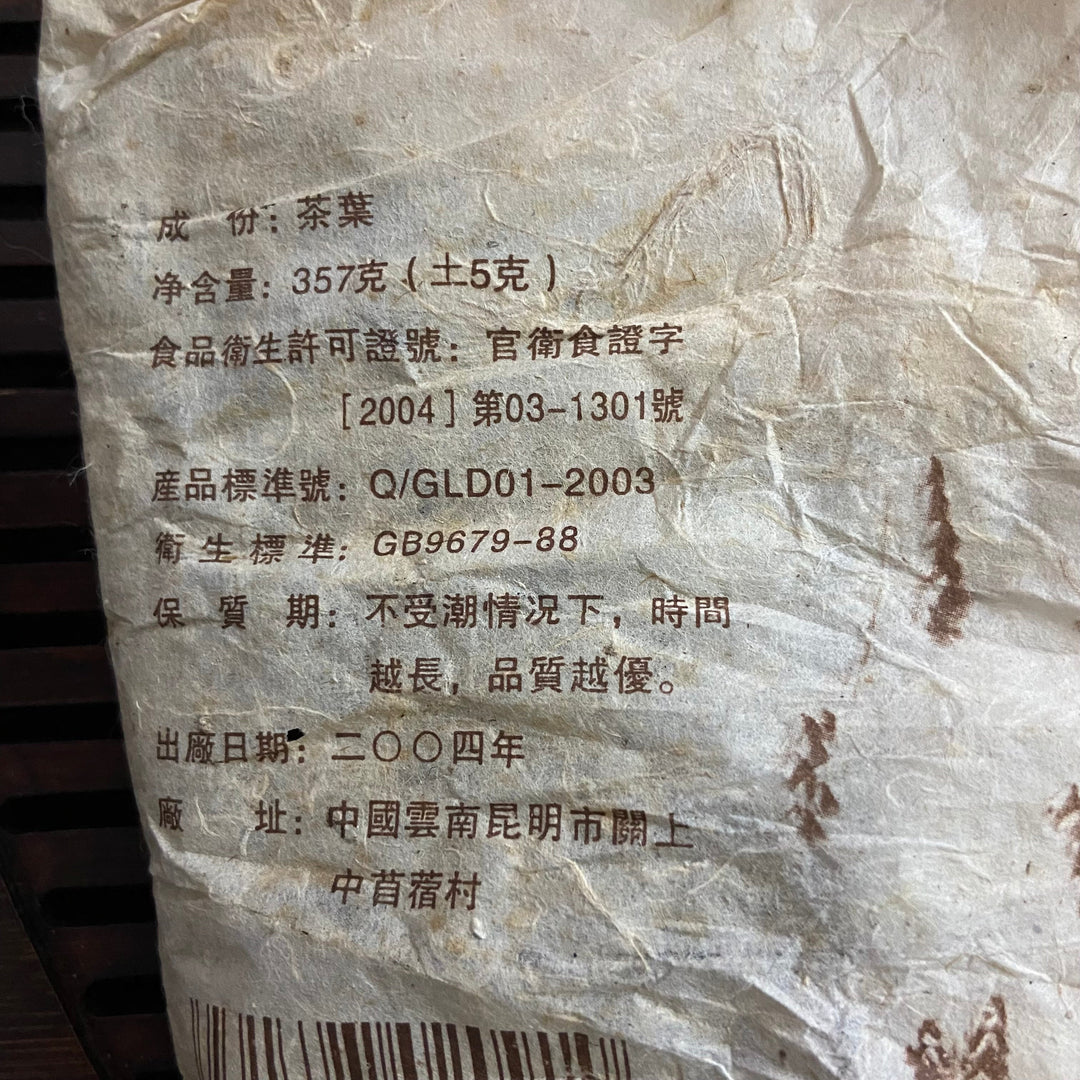 成 份：茶葉
净含量：357克（土5克）
食品衛生許可證號：官衛食證字
［2004］第03-1301號
産品標準號：Q/GLD01-2003
衛生標準：GB9679-88
保 質 期：不受潮情况下，時間
越長，品質越優。
出廠日期：二〇〇四年
廠 址：中國雲南昆明市關上
中苜蓿村